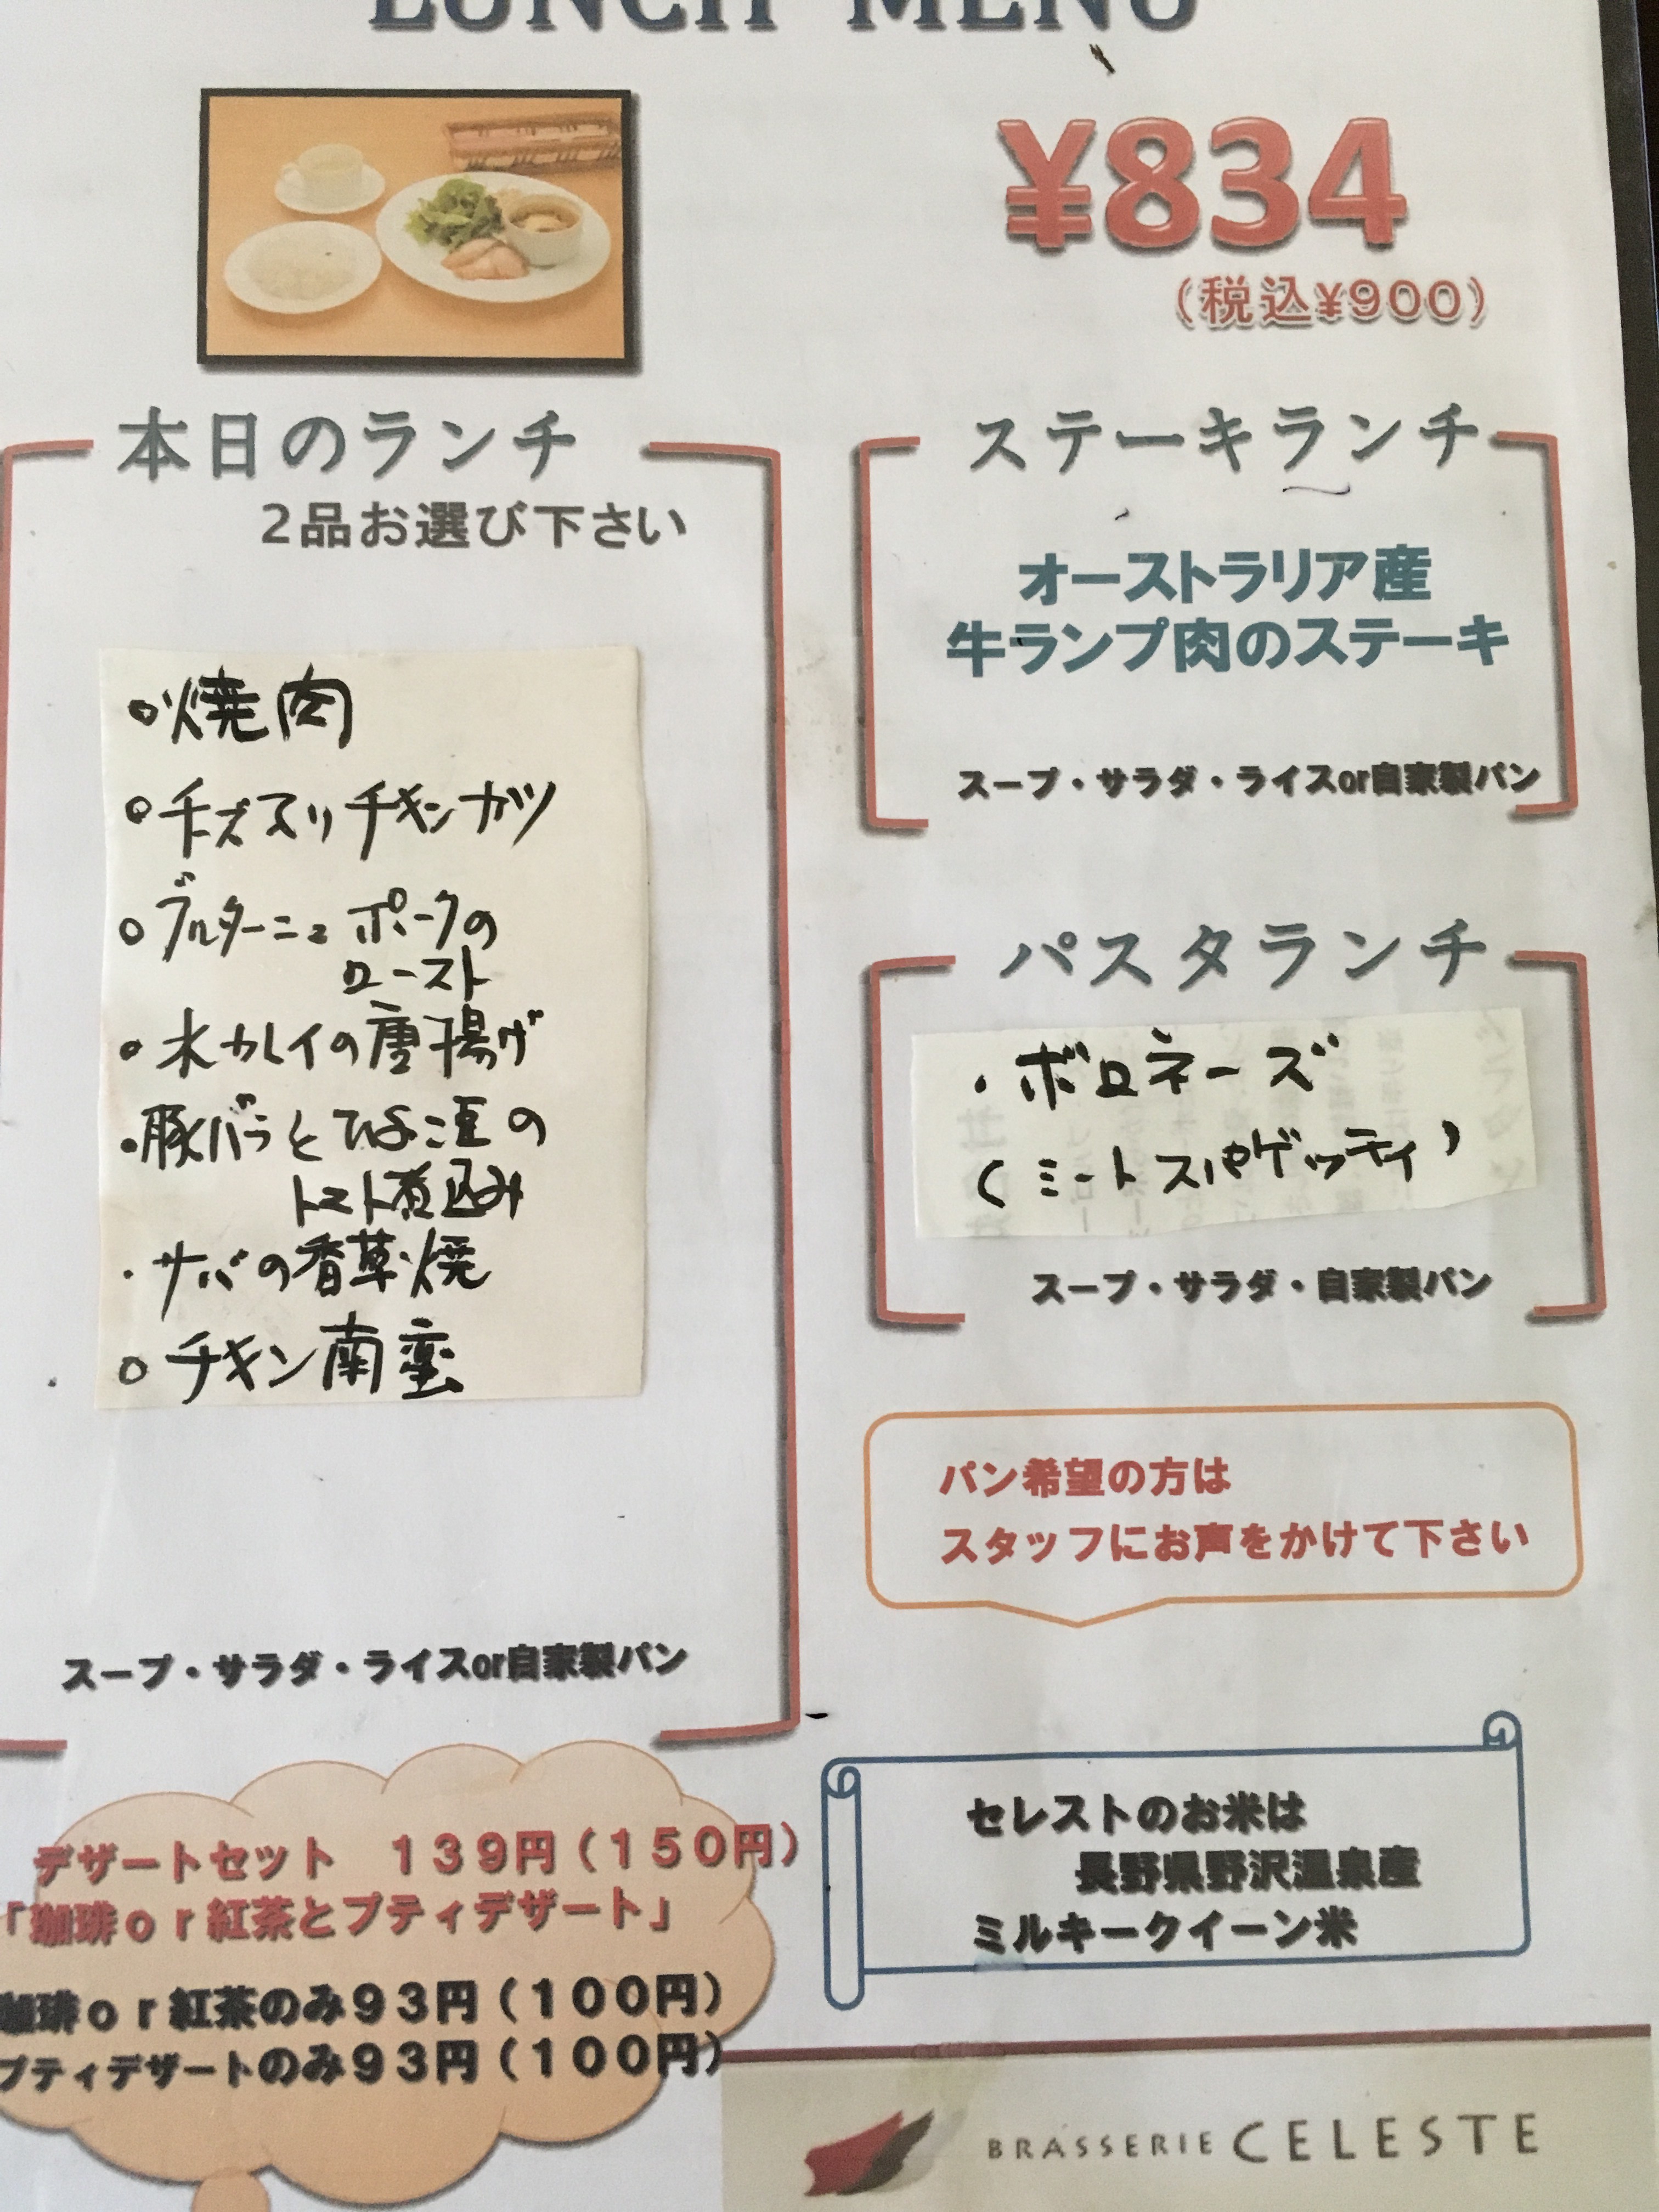 LUNCH MENU
¥834
（税込¥900）
本日のランチ
2品お選び下さい
焼肉
チーズ入りチキンカツ
ブルターニュポークの
ロースト
水カレイの唐揚げ
豚バラとひよこ豆の
トマト煮込み
サバの香草焼
チキン南蛮
スープ・サラダ・ライスor自家製パン
ステーキランチ
オーストラリア産
牛ランプ肉のステーキ
スープ・サラダ・ライスor自家製パン
パスタランチ
・ボロネーズ
(ミートスパゲッティ)
スープ・サラダ・自家製パン
パン希望の方は
スタッフにお声をかけて下さい
デザートセット　139円（150円）
「珈琲or紅茶とプティデザート」
珈琲or紅茶のみ93円（100円）
プティデザートのみ93円（100円）
セレストのお米は
長野県野沢温泉産
ミルキークイーン米
BRASSERIE CELESTE